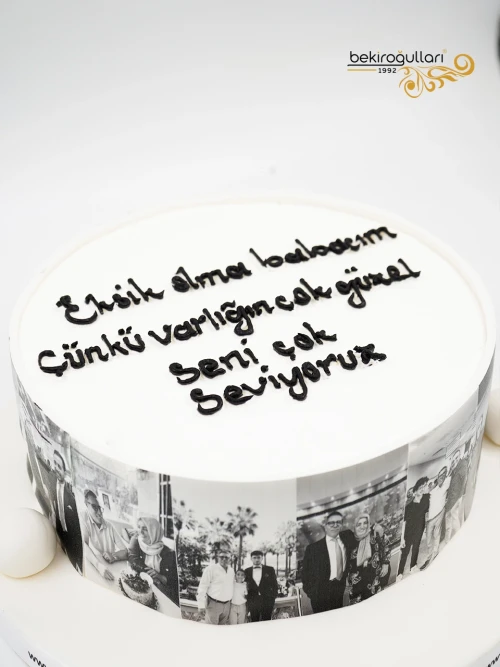 bekiroğulları
1992
Eksik olma babacım
Çünkü varlığın çok güzel
seni çok
seviyoruz